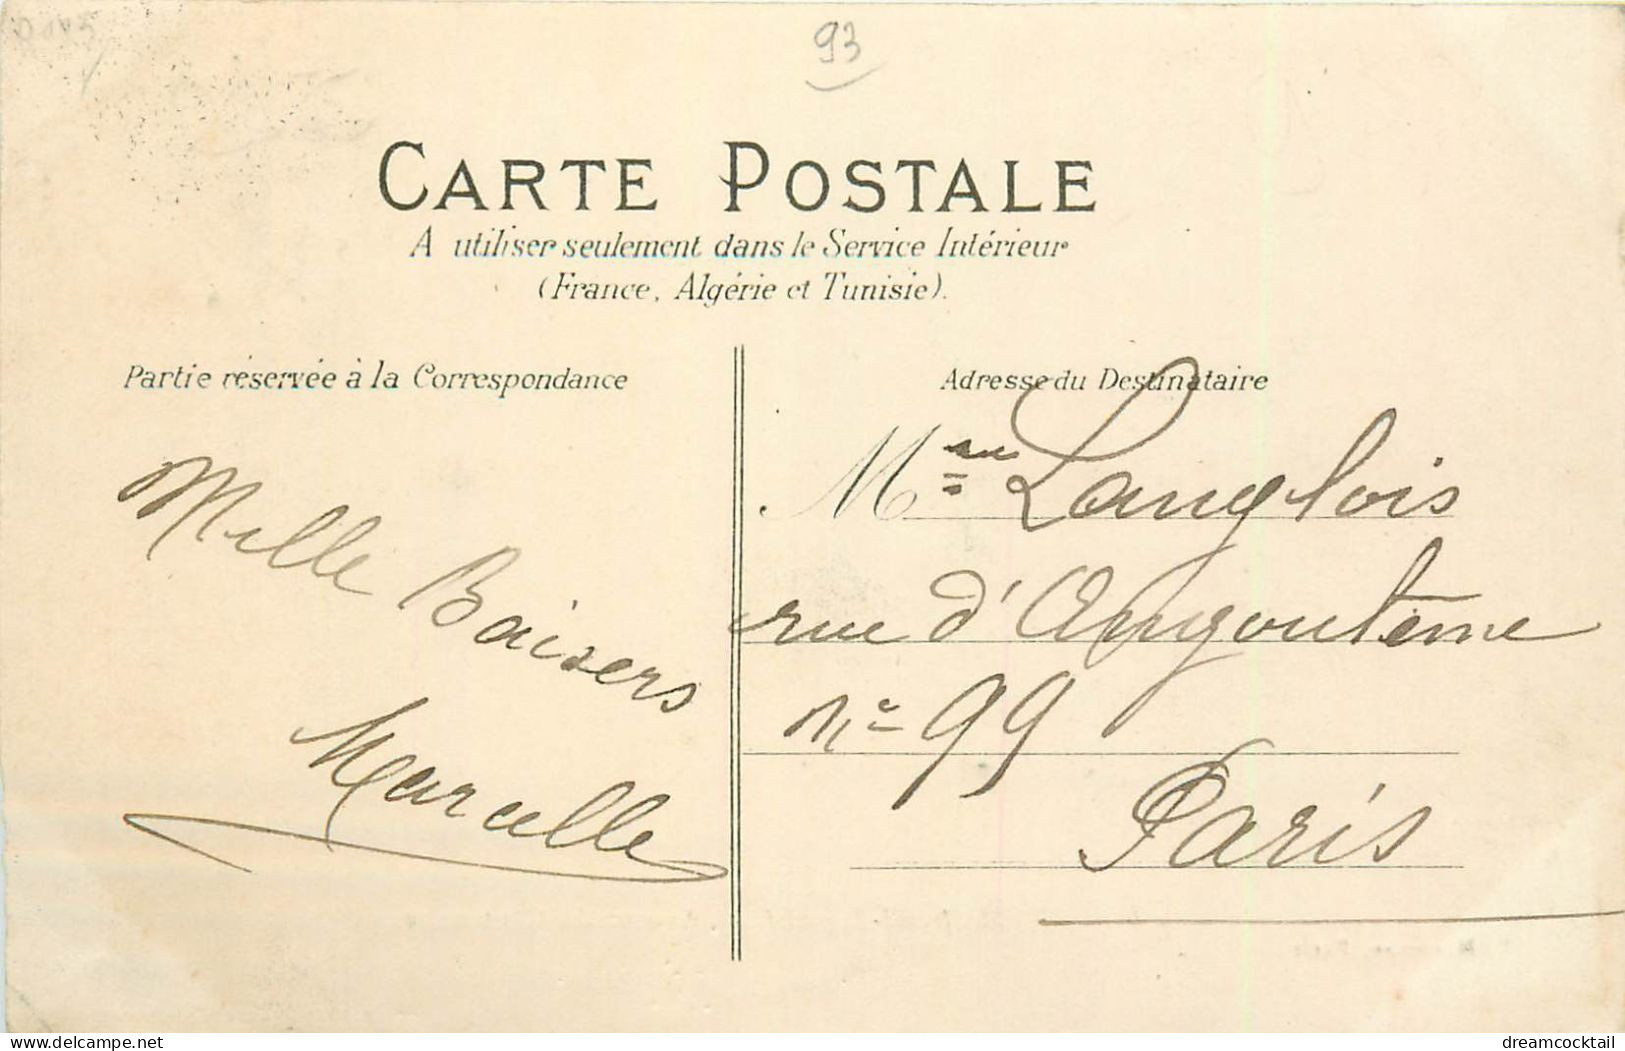 93
CARTE POSTALE
A utiliser seulement dans le Service Intérieur
(France, Algérie et Tunisie).
Partie réservée à la Correspondance
Mille Baisers
Marcelle
Adresse du Destinataire
Mme Langlois
rue d'Angoulême
No 99
Paris
delcampe.net
dreamcocktail